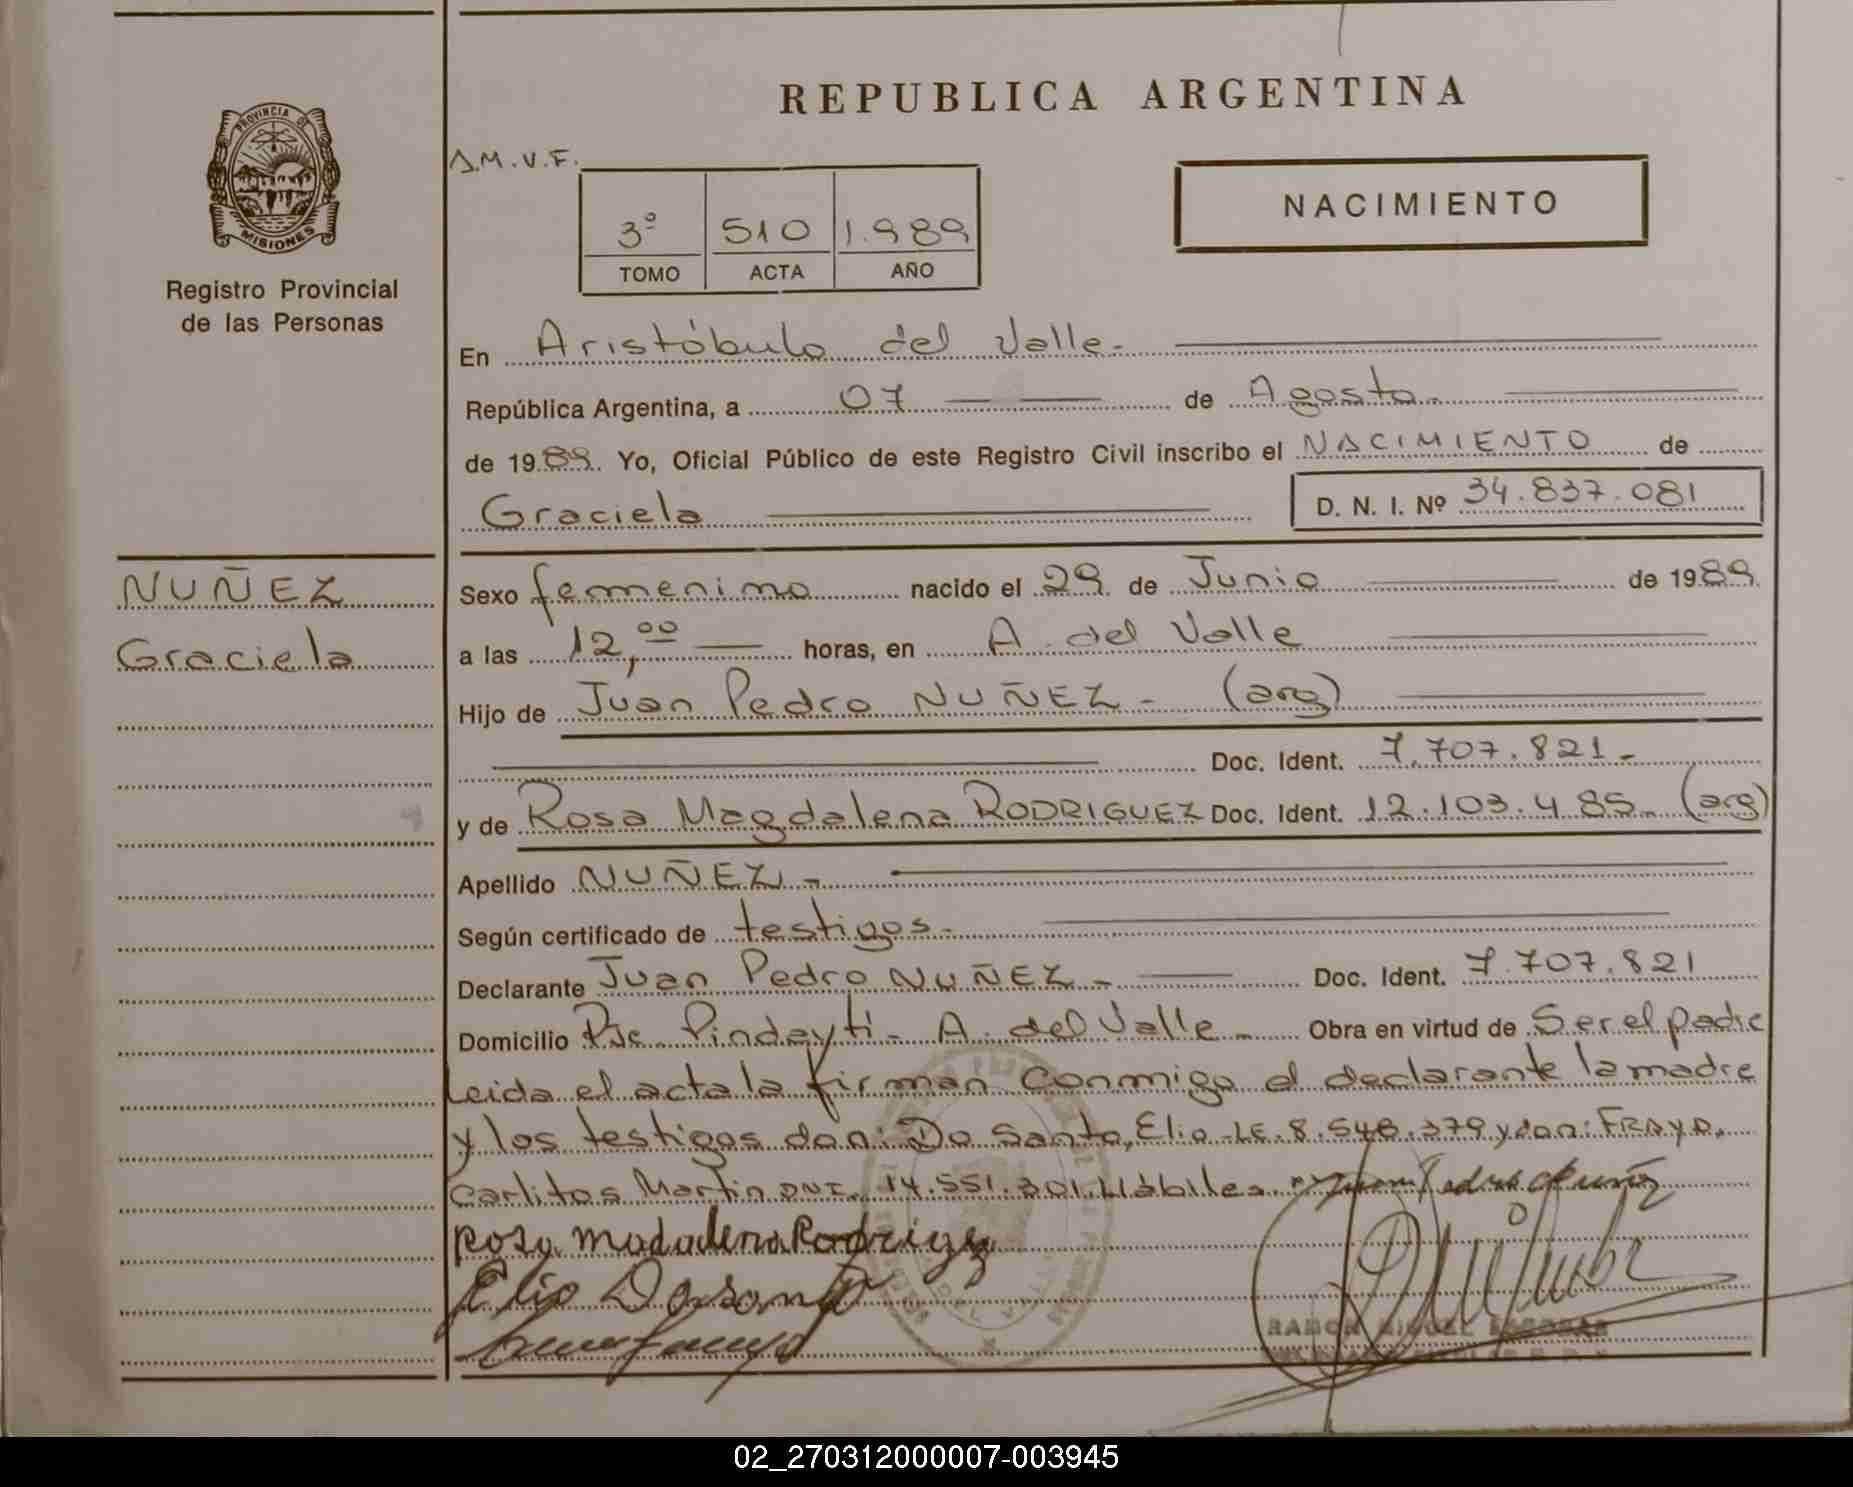 REPUBLICA ARGENTINA
PROVINCIA DE
MISIONES
Registro Provincial
de las Personas
A.M.V.F.
3º 510 1.989
TOMO ACTA AÑO
NACIMIENTO
En Aristóbulo del Valle.-
República Argentina, a 07 de Agosto.-
de 1989. Yo, Oficial Público de este Registro Civil inscribo el NACIMIENTO de
Graciela
D. N. I. Nº 34.837.081
NUÑEZ
Graciela
Sexo femenino nacido el 29 de Junio de 1989.
a las 12,00 horas, en A. del Valle
Hijo de Juan Pedro NUÑEZ - (arg)
Doc. Ident. 7.707.821.-
y de Rosa Magdalena RODRIGUEZ Doc. Ident. 12.103.485.- (arg)
Apellido NUÑEZ.-
Según certificado de testigos.-
Declarante Juan Pedro NUÑEZ.- Doc. Ident. 7.707.821
Domicilio Pje. Pindayti- A. del Valle.- Obra en virtud de Ser el padre
Leida el acta la firman conmigo el declarante la madre
y los testigos don: Do Santo, Elio -LE. 8.548.379 y don:
Carlitos Martin DNI. 14.551.301. Hábiles.
Rosa Madalena Rodrigez
Elio Dosanto
RAMON MIGUEL ESCOBAR
02_270312000007-003945